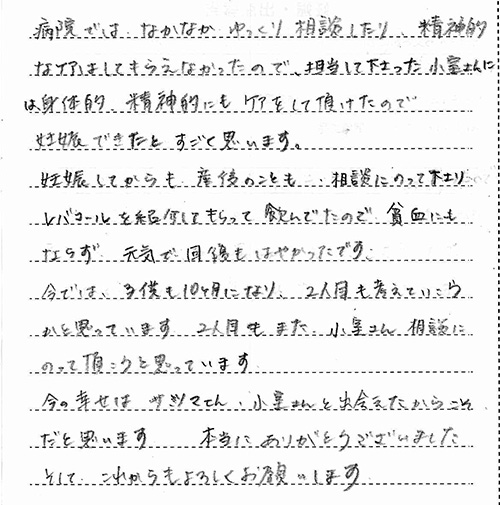 病院では、なかなか ゆっくり 相談したり、精神的
なケアはしてもらえなかったので、担当して下さった 小室さんに
は身体的、精神的にも ケアをして頂けたので
妊娠できたと すごく思います。
妊娠してからも、産後のことも、相談にのって下さり
レバコールを紹介してもらって 飲んでたので 貧血にも
ならず、元気で 回復も はやかったです。
今では、子供も10ヶ月になり、2人目も考えていこう
かと思っています 2人目も また、小室さん 相談に
のって頂こうと思っています
今の幸せは サツマてん、小室さんと出会えたからこそ
だと思います 本当に ありがとうございました
そして、これからもよろしくお願いします